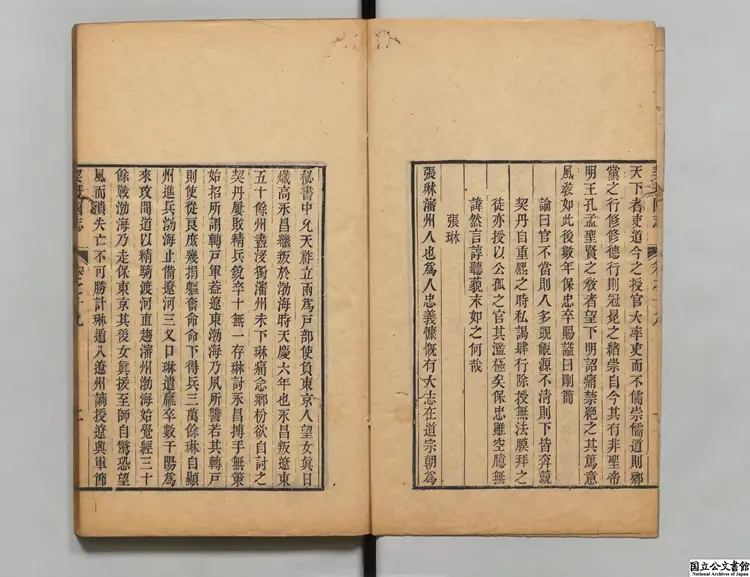 天下者吏道今之授官大率吏而不儒崇儒道則鄉
黨之行修修德行則冠冕之緒崇自今其有非聖帝
明王孔孟聖賢之敎者望下明詔痛禁絶之其篤意
風敎如此後數年保忠卒賜謚曰剛簡
論曰官不當則人多覬覦源不清則下皆奔競
契丹自重熙之時私謁肆行除授無法膜拜之
徒亦授以公孤之官其濫極矣保忠雖空臆無
諱然言諄聽藐末如之何哉
張琳
張琳瀋州人也爲人忠義慷慨有大志在道宗朝爲
秘書中允天祚立兩爲戸部使負東京人望女眞日
熾高永昌繼叛於渤海時天慶六年也永昌叛遼東
五十餘州盡沒獨瀋州未下琳痛念鄉枌欲自討之
契丹屢敗精兵銳卒十無一存琳討永昌搏手無策
始招所謂轉戸軍蓋遼東渤海乃夙所讐若其轉戸
則使從良庶幾捐軀奮命命下得兵三萬餘琳自顯
州進兵渤海止備遼河三叉口琳遣羸卒數千陽爲
來攻間道以精騎渡河直趨瀋州渤海始覺經三十
餘戰渤海乃走保東京其後女眞援至師自驚恐望
風而潰失亡不可勝計琳遁入遼州謫授遼興軍節
契丹國志
卷之十九
国立公文書館
National Archives of Japan